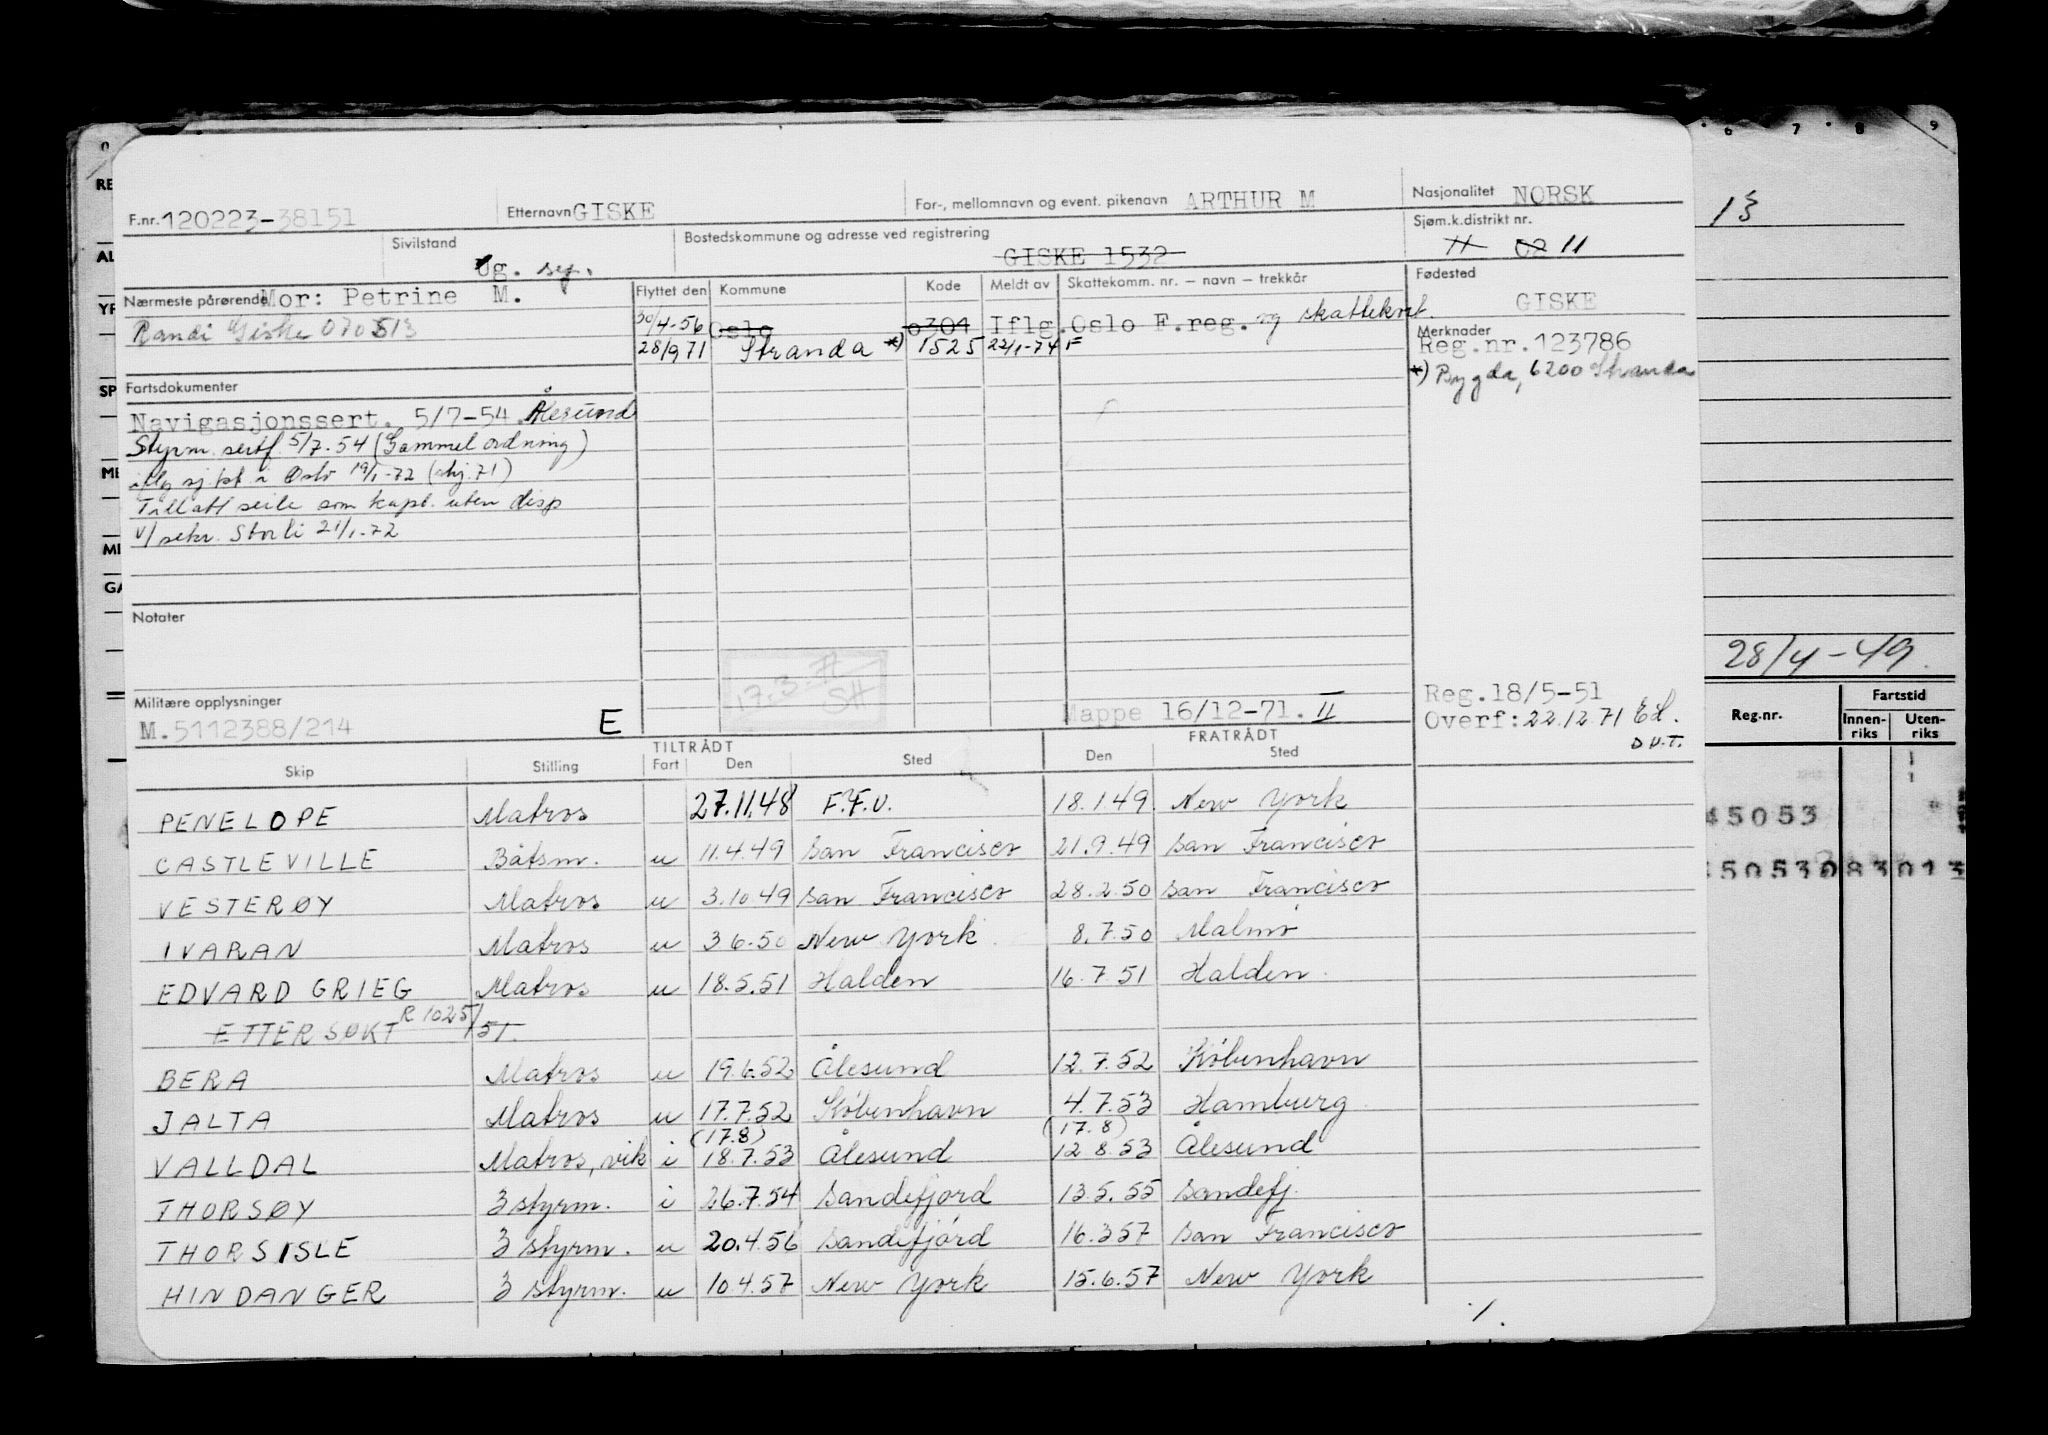 F.nr. 120223-38151 Etternavn GISKE For-, mellomnavn og event. pikenavn ARTHUR M Nasjonalitet NORSK
Sivilstand Ug. sep. Bostedskommune og adresse ved registrering GISKE 1532 Sjøm.k.distrikt nr. 11 02 11
Nærmeste pårørende Mor: Petrine M. Flyttet den Kommune Kode Meldt av Skattekomm. nr. – navn – trekkår Fødested GISKE
Randi Giske 070513 30/4-56 Oslo 0301 Iflg. Oslo F.reg. og skattekort.
28/9 71 Stranda *) 1525 22/1-74 F
Merknader
Reg.nr.123786
*) Bygda, 6200 Stranda
Fartsdokumenter
Navigasjonssert. 5/7-54 Ålesund
Styrm. sertf. 5/7.54 (Gammel ordning)
iflg sj.kt. i Oslo 19/1-72 (ahj. 71)
Tillatt seile som kapt. uten disp
v/ sekr. Storli 21/1-72
Notater
17.3.71
SH
Militære opplysninger
M.5112388/214 E
Mappe 16/12-71. II
Reg.18/5-51
Overf: 22.12.71 Ed.
D.U.T.
TILTRÅDT FRATRÅDT
Skip Stilling Fart Den Sted Den Sted
PENELOPE Matros 27.11.48 F.F.V. 18.1.49 New York
CASTLEVILLE Båtsm. u 11.4.49 San Francisco 21.9.49 San Francisco
VESTERØY Matros u 3.10.49 San Francisco 28.2.50 San Francisco
IVARAN Matros u 3 6.50 New York 8.7.50 Malmö
EDVARD GRIEG Matros u 18.5.51 Halden 16.7.51 Halden
ETTERSØKT R 1025/51
BERA Matros u 19.6.52 Ålesund 12.7.52 København
JALTA Matros u 17.7.52 København 4.7.53 Hamburg
(17.8) (17.8)
VALLDAL Matros, vik i 18.7.53 Ålesund 12 8.53 Ålesund
THORSØY 3 styrm. i 26.7.54 Sandefjord 13.5.55 Sandefj.
THORSISLE 3 styrm. u 20.4.56 Sandefjord 16.357 San Francisco
HINDANGER 3 styrm. u 10.4.57 New York 15.6.57 New York
1.
6 7 8 9
13
28/4-49.
Reg.nr. Fartstid
Innenriks Utenriks
45053
45053083013